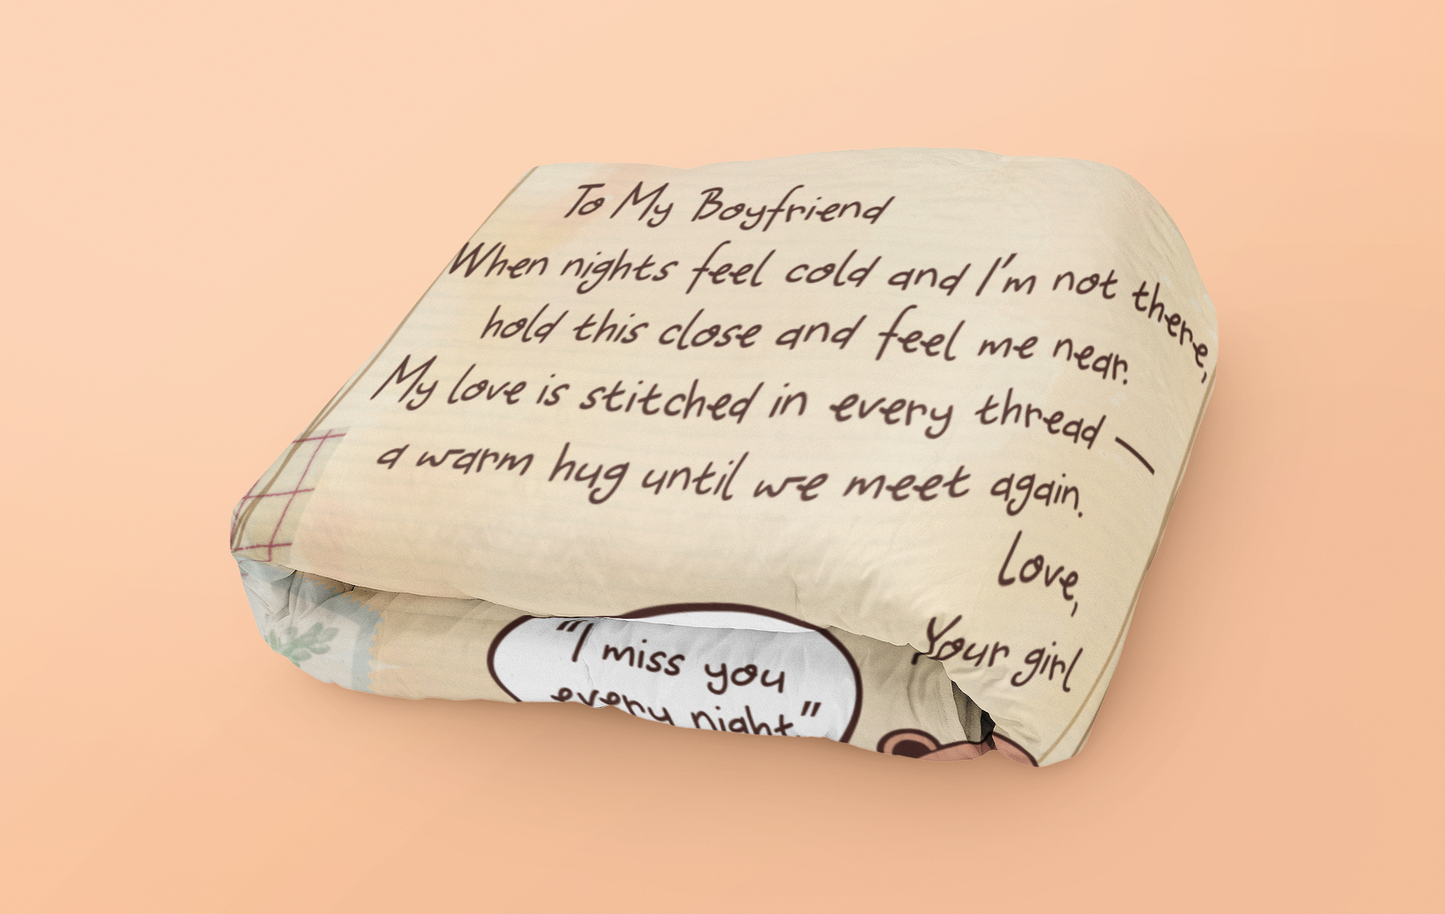 To My Boyfriend
When nights feel cold and I'm not there,
hold this close and feel me near.
My love is stitched in every thread —
a warm hug until we meet again.
Love,
Your girl
"I miss you
every night."